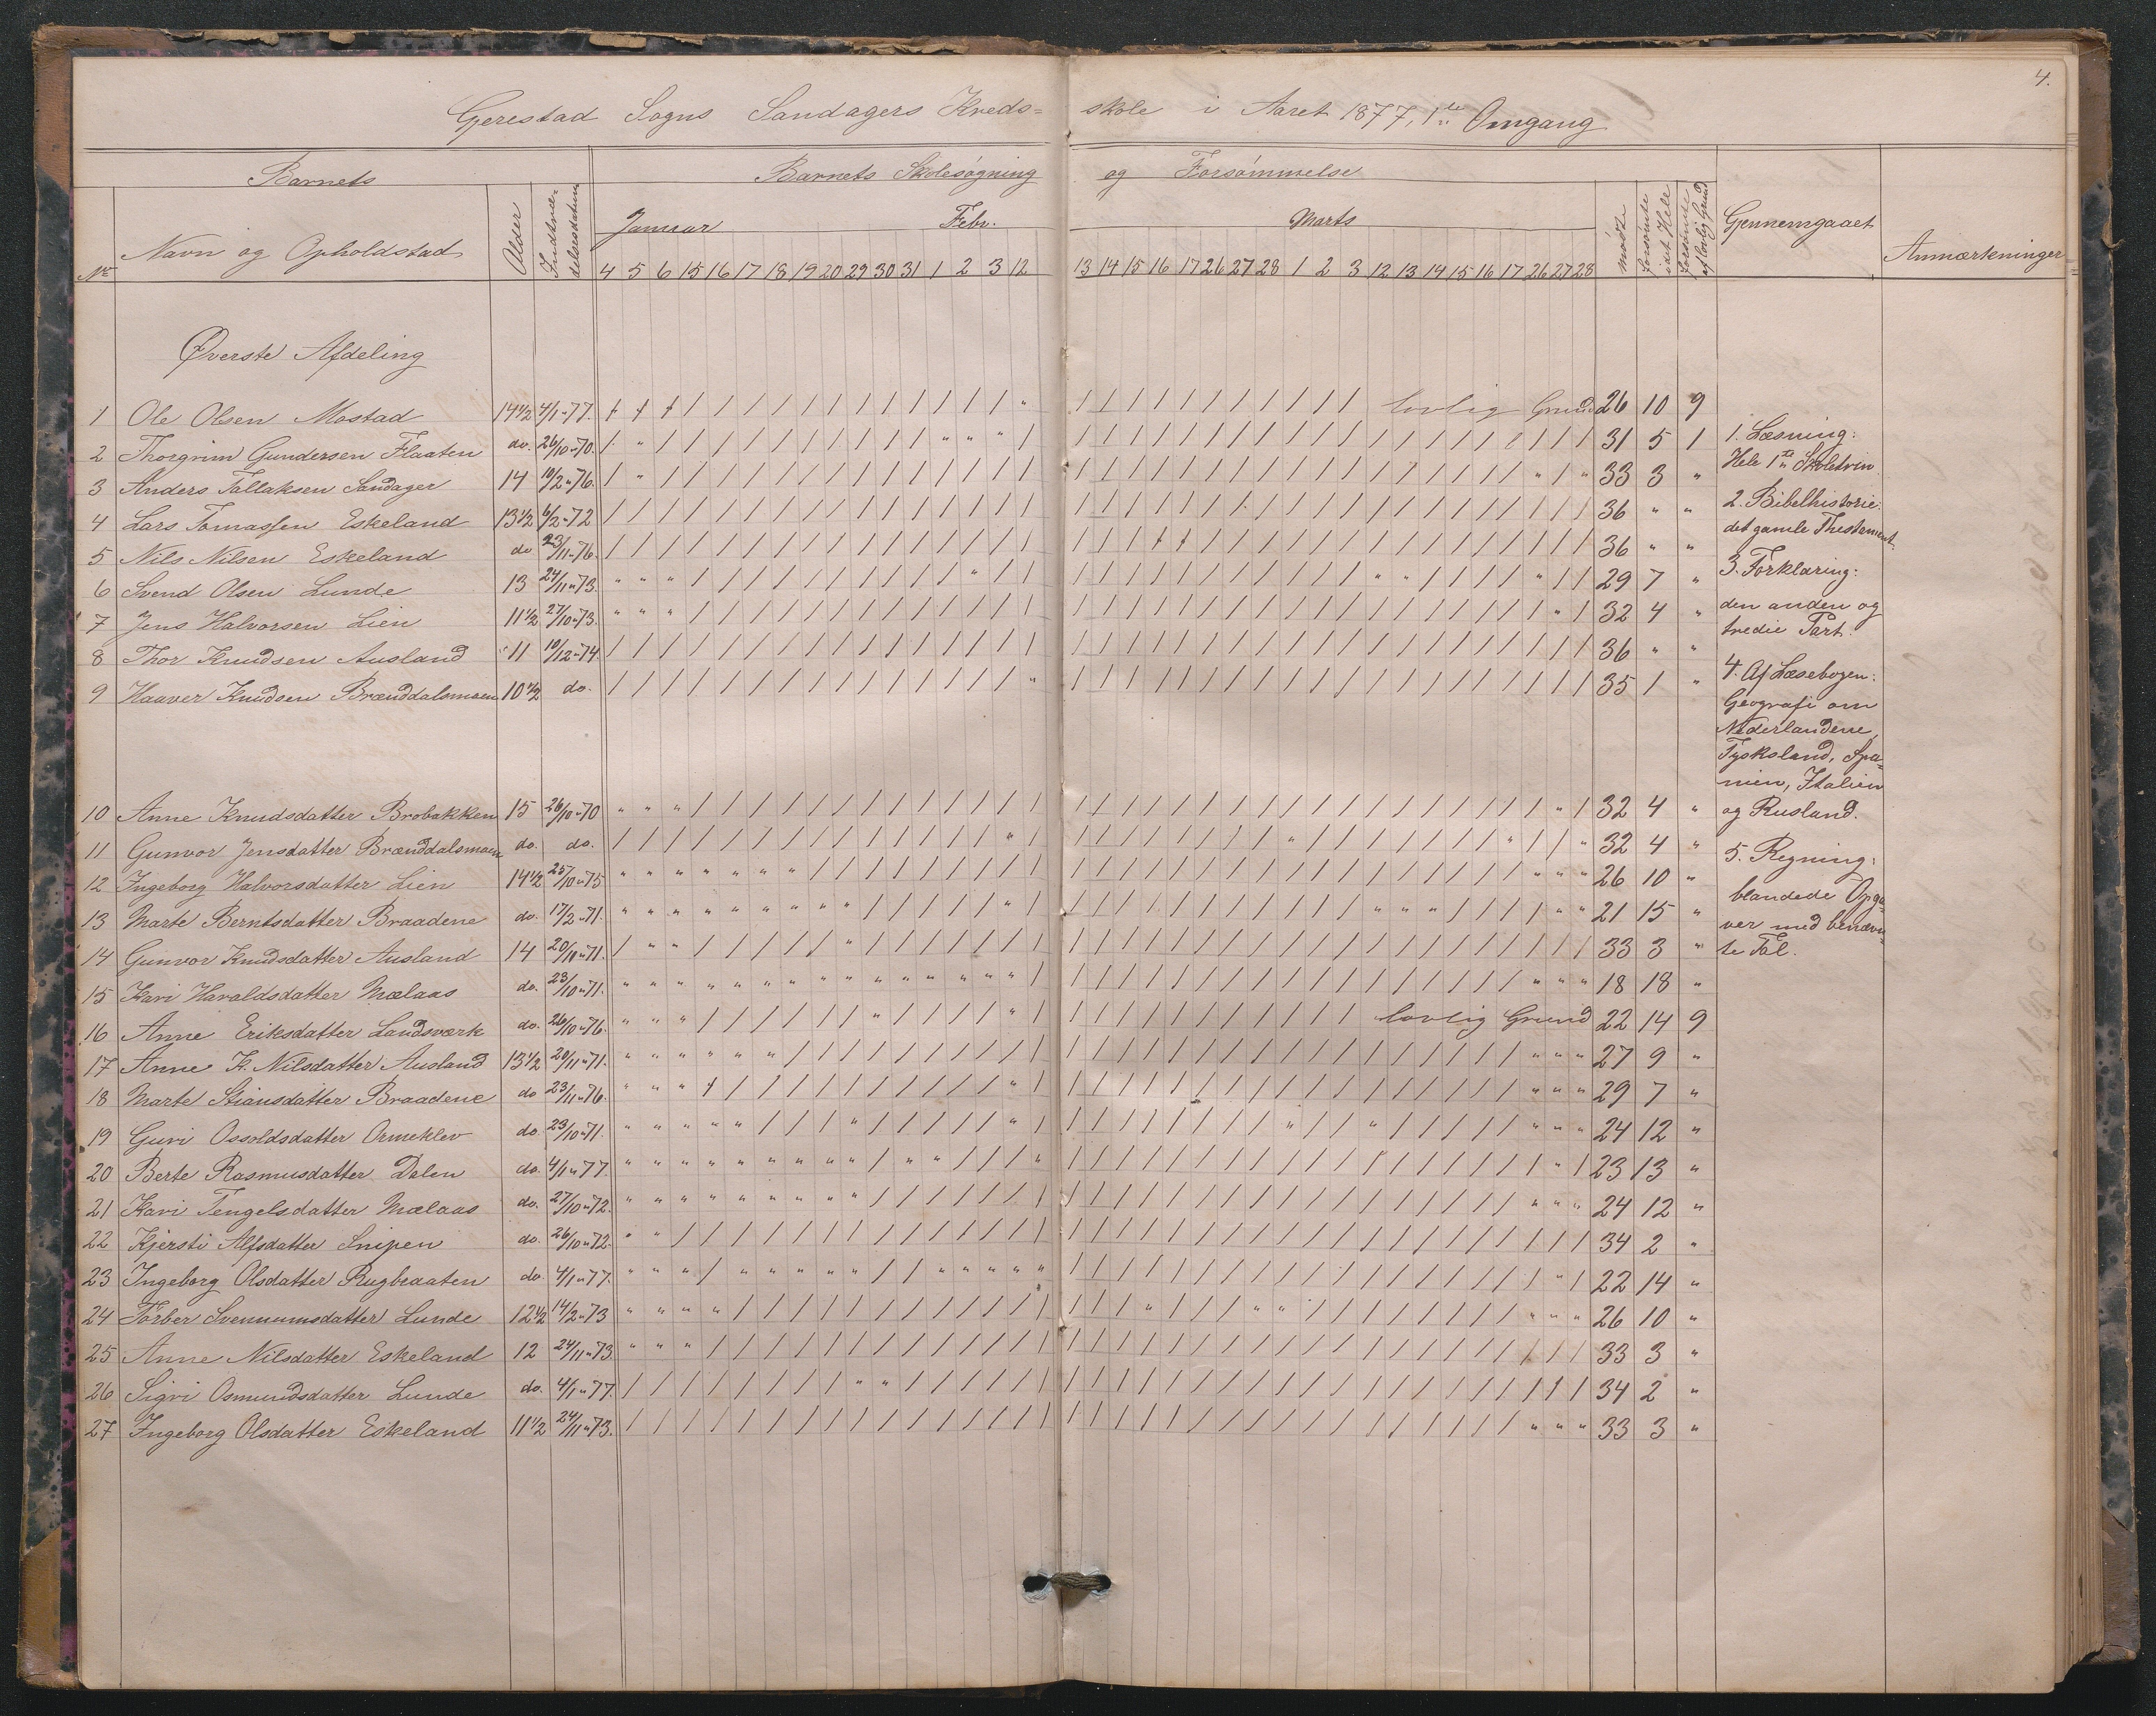 4.
Gjerestad Sogns Sandagers Kreds= skole i Aaret 1877, 1ste Omgang
Barnets Barnets Skolesøgning og Forsømmelse
No Navn og Opholdstad Alder Indtræ- delsesdatum Januar Febr. Marts mødte forsømte i det Hele forsømte af lovlig Grund Gjennemgaaet Anmærkninger
4 5 6 15 16 17 18 19 20 29 30 31 1 2 3 12 13 14 15 16 17 26 27 28 1 2 3 12 13 14 15 16 17 26 27 28
Øverste Afdeling
1 Ole Olsen Mostad 14 1/2 4/1-77. lovlig Grund 26 10 9
2 Thorgrim Gundersen Flaaten do. 26/10-70. 31 5 1
3 Anders Tallaksen Sandager 14 10/2-76. 33 3 "
4 Lars Tomassen Eskeland 13 1/2 6/2-72 36 " "
5 Nils Nilsen Eskeland do 23/11-76. 36 " "
6 Svend Olsen Lunde 13 24/11-73. 29 7 "
7 Jens Halvorsen Lien 11 1/2 27/10-73. 32 4 "
8 Thor Knudsen Ausland 11 10/12-74 36 " "
9 Haaver Knudsen Brænddalsmoen 10 1/2 do. 35 1 "
10 Anne Knudsdatter Brobakken 15 26/10-70 32 4 "
11 Gunvor Jensdatter Brænddalsmoen do. do. 32 4 "
12 Ingeborg Halvorsdatter Lien 14 1/2 25/10-75 26 10 "
13 Marte Berntsdatter Braadene do. 17/2-71. 21 15 "
14 Gunvor Knudsdatter Ausland 14 20/11-71. 33 3 "
15 Kari Haraldsdatter Mælaas do. 23/10-71. 18 18 "
16 Anne Eriksdatter Landsværk do. 26/10-76. lovlig Grund 22 14 9
17 Anne K. Nilsdatter Ausland 13 1/2 20/11-71. 27 9 "
18 Marte Stiansdatter Braadene do 23/11-76. 29 7 "
19 Guri Ossoldsdatter Ormeklev do 23/10-71. 24 12 "
20 Berte Rasmusdatter Dalen do. 4/1-77. 23 13 "
21 Kari Tengelsdatter Mælaas do. 27/10-72. 24 12 "
22 Kjersti Alfsdatter Snipen do. 26/10-72. 34 2 "
23 Ingeborg Olsdatter Rugbraaten do. 4/1-77. 22 14 "
24 Torber Svenumsdatter Lunde 12 1/2 14/2-73 26 10 "
25 Anne Nilsdatter Eskeland 12 24/11-73. 33 3 "
26 Sigri Osmundsdatter Lunde do. 4/1-77. 34 2 "
27 Ingeborg Olsdatter Eskeland 11 1/2 24/11-73. 33 3 "
1. Læsning:
Hele 1ste Skoletrin
2. Bibelhistorie:
det gamle Thestement
3. Forklaring:
den anden og
tredie Part.
4. Af Læsebogen:
Geografi om
Nederlandene,
Tyskland, Spa-
nien, Italien
og Rusland.
5. Regning:
blandede Opga-
ver med benævn-
te Tal.